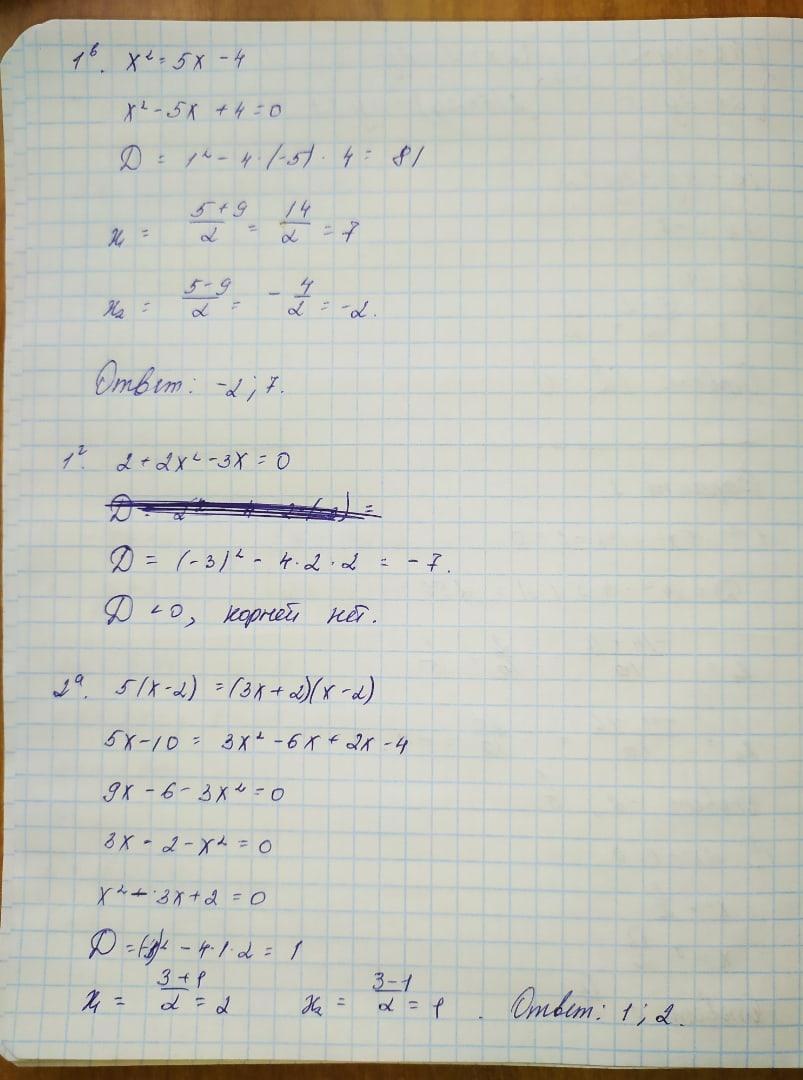 1в. x² = 5x - 4
x² - 5x + 4 = 0
D = 1² - 4·(-5)·4 = 81
x₁ = (5+9)/2 = 14/2 = 7
x₂ = (5-9)/2 = -4/2 = -2.
Ответ: -2; 7.
1г. 2 + 2x² - 3x = 0
D = (-3)² - 4·2·2 = -7.
D < 0, корней нет.
2а. 5(x-2) = (3x+2)(x-2)
5x - 10 = 3x² - 6x + 2x - 4
9x - 6 - 3x² = 0
3x - 2 - x² = 0
x² - 3x + 2 = 0
D = (-3)² - 4·1·2 = 1
x₁ = (3+1)/2 = 2 x₂ = (3-1)/2 = 1. Ответ: 1; 2.